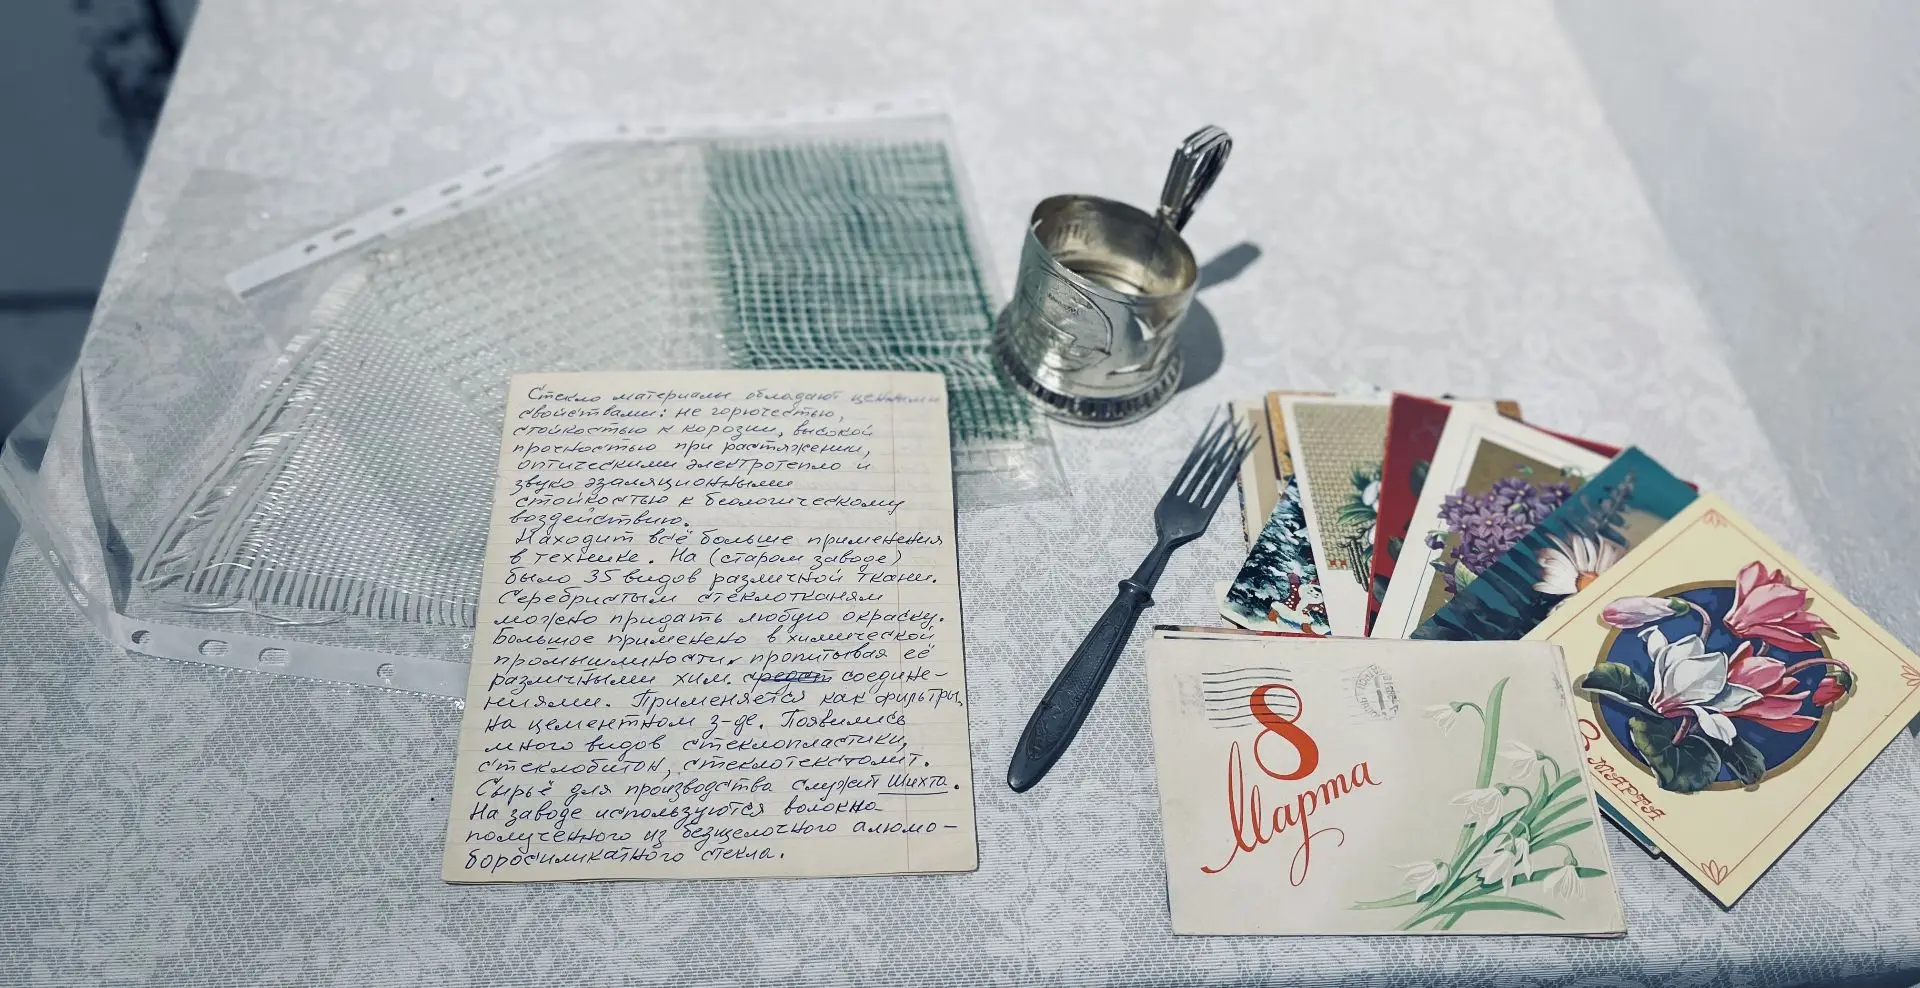 Стекло материалы обладают ценными
свойствами: не горючестью,
стойкостью к корозии, высокой
прочностью при растяжении,
оптическими электротепло и
звуко эзаляционными
стойкостью к биологическому
воздействию.
Находит всё больше применения
в технике. На (старом заводе)
было 35 видов различной ткани.
Серебристым стеклотканям
можно придать любую окраску.
Большое применено в химической
промышлиности, пропитывая её
различными хим. соедине-
ниями. Применяется как фильтры,
на цементном з-де. Появились
много видов стеклопластики,
стеклобитон, стеклотекстолит.
Сырьё для производства служит Шихта.
На заводе используются волокно
полученного из безщелочного алюмо-
боросиликатного стекла.
8
Марта
8 МАРТА